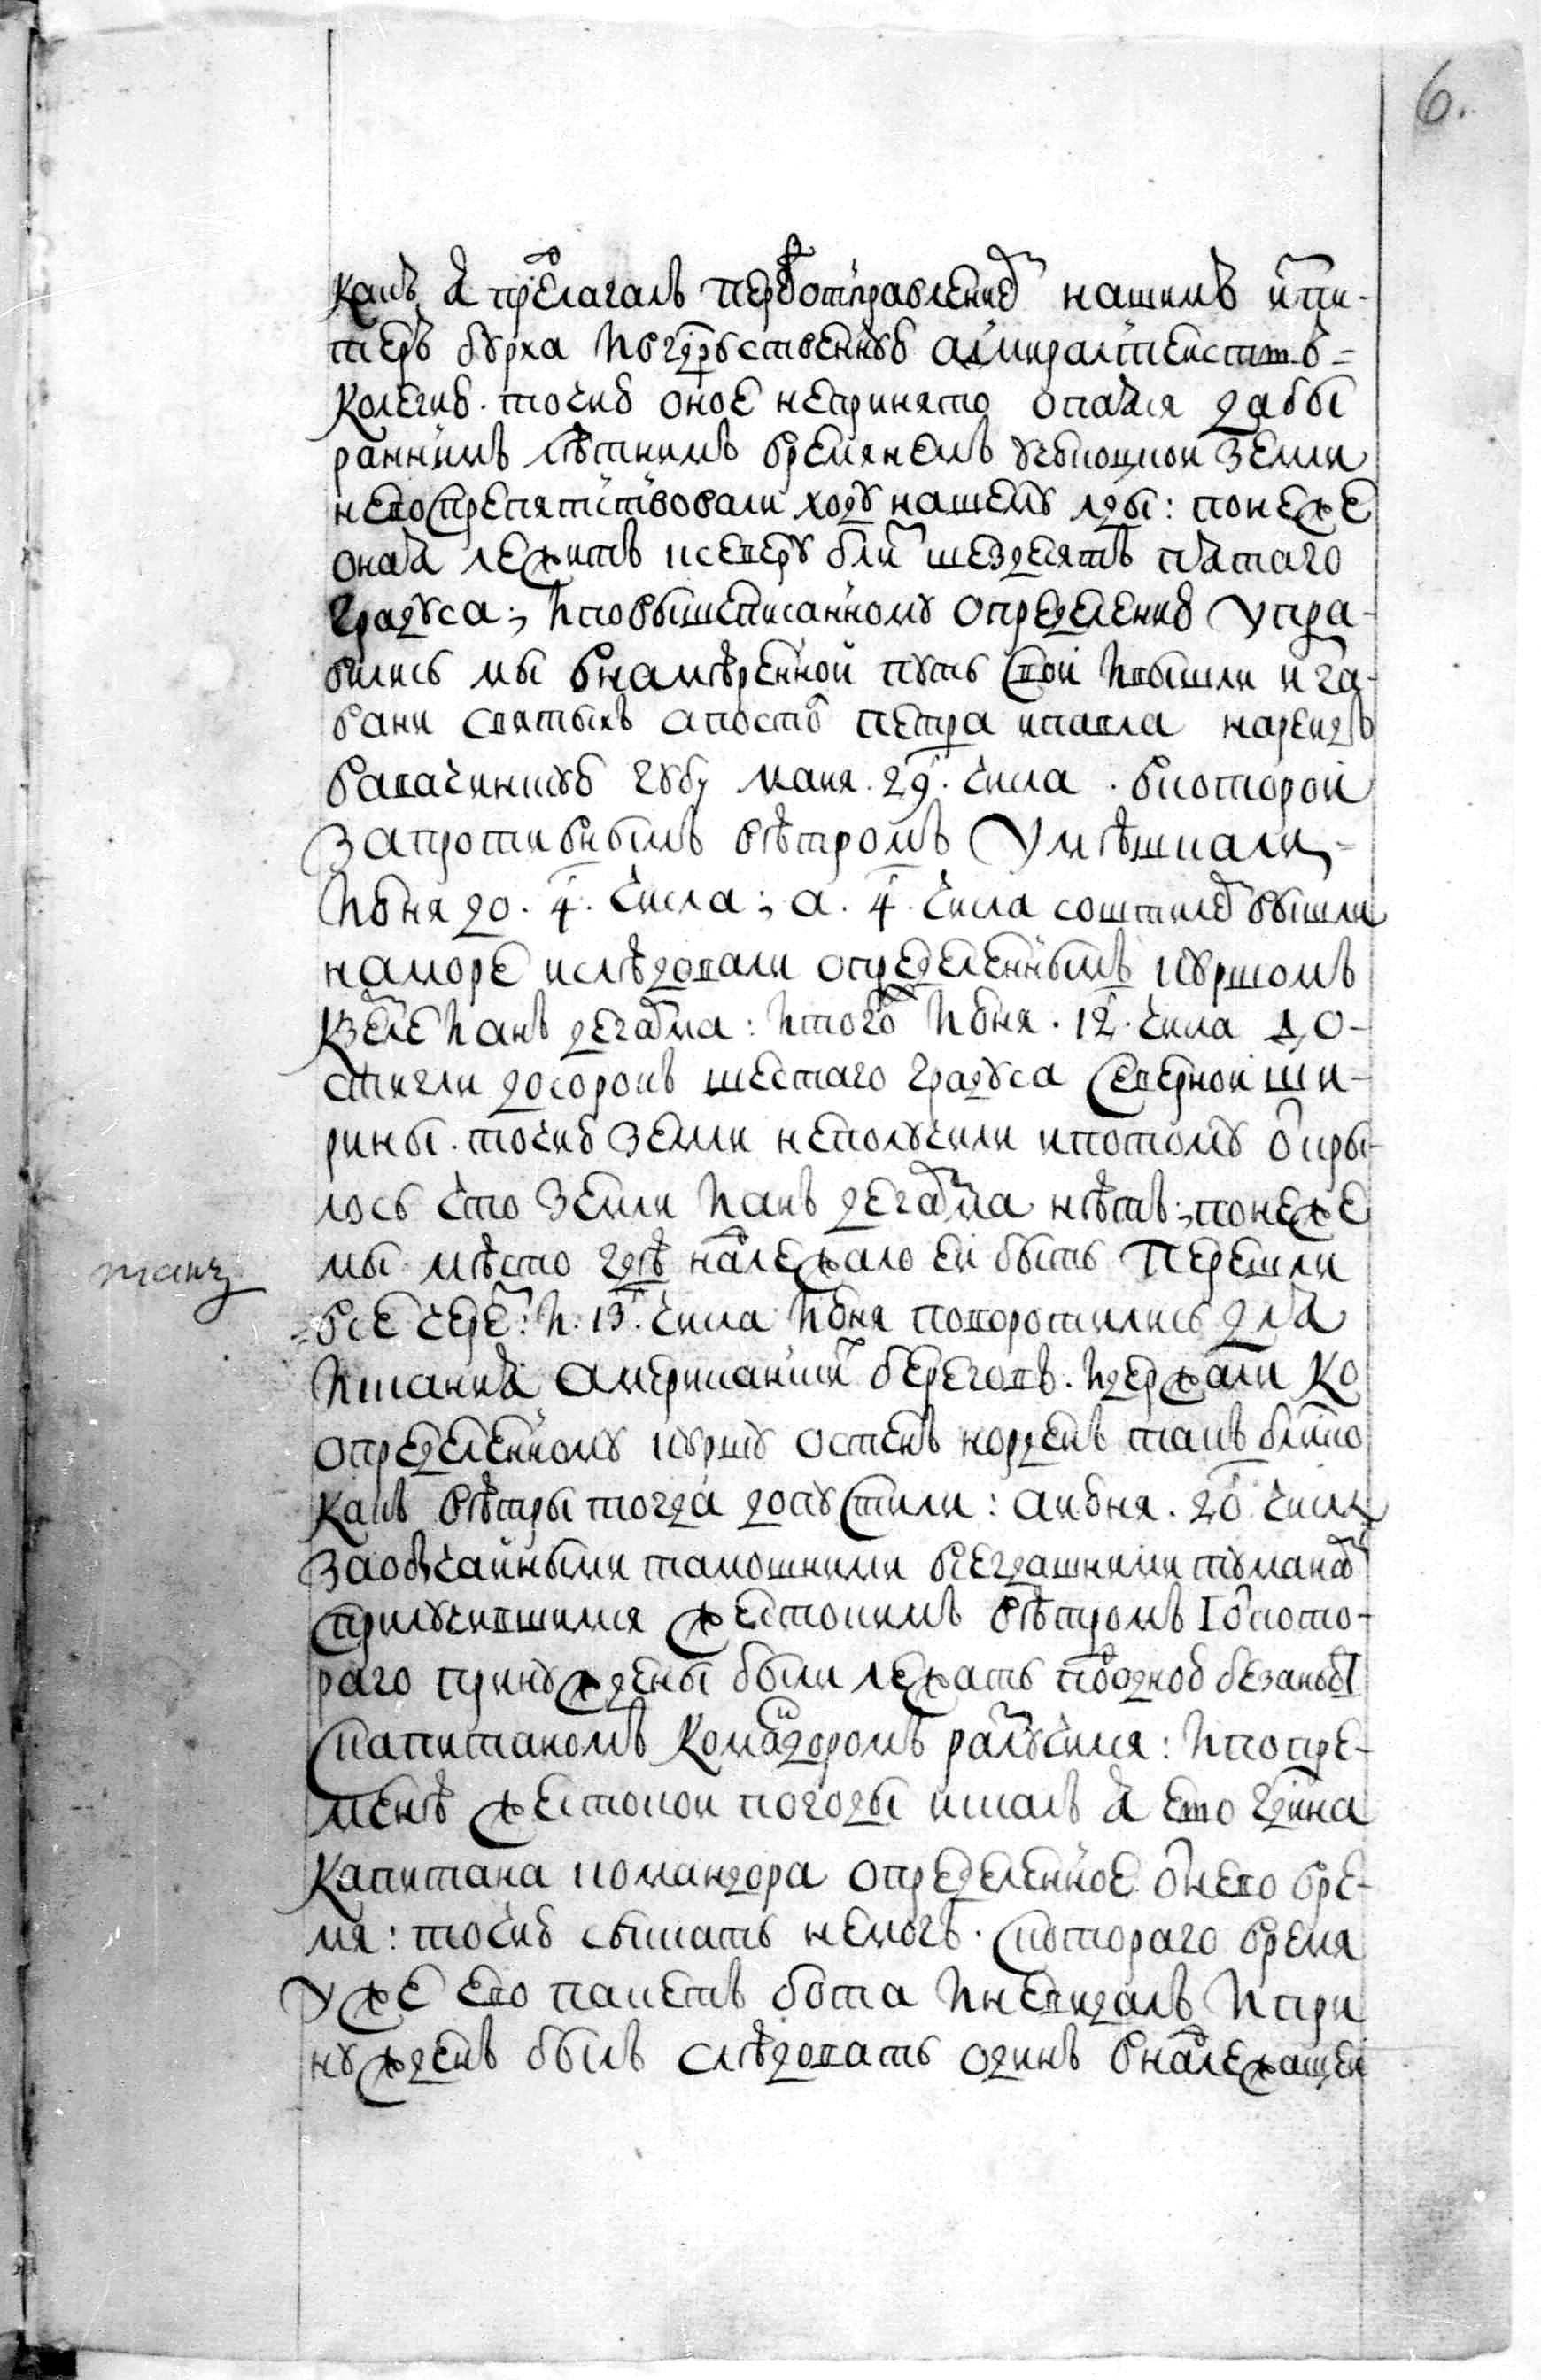 6.
какъ я предлагалъ передъ отправлениемъ нашимъ ис пи-
теръ бурха в государственную адмиралтеискую
колегию. токмо оное не принято опасая дабы
раннимъ лѣтнимъ времянемъ у чюкоцкои земли
невоспрепятствовали ходу нашему лды: понеже
оная лежитъ к северу близ шездесятъ пятаго
градуса; и по вышеписанному определению упра-
вились мы в намѣренной путь свой и вышли из га-
вани святыхъ апостолъ петра и павла нарейдъ
в авачинскую губу маия. 29. числа. в которой
за противнымъ вѣтромъ умѣшкали
июня до. 4. числа; а. 4. числа со штилемъ вышли
на море и слѣдовали определеннымъ куршомъ
к земле ианъ дегама: и того июня. 12. числа до-
стигли до сорокъ шестаго градуса северной ши-
рины. токмо земли неполучили и потому откры-
лось что земли ианъ дегама нѣтъ; понеже
мы мѣсто гдѣ надлежало ей быть перешли
такъ
все черезъ: и. 13. числа июня поворотились для
искания американских береговъ. и держали ко
определенному куршу остенъ норденъ такъ близко
какъ вѣтры тогда допустили: а июня. 20. числа
за обычайными тамошними всегдашними туманами
и прилучившимся жестокимъ вѣтромъ от кото-
раго принуждены были лежать под одною безанью
с капитаномъ командоромъ разлучился: и по пре-
менѣ жестокой погоды искалъ я его гдина
капитана командора определенное от него вре-
мя: токмо сыскать немогъ. с котораго время
уже ево пакетъ бота и невидалъ и при
нужденъ былъ слѣдовать одинъ в надлежащей